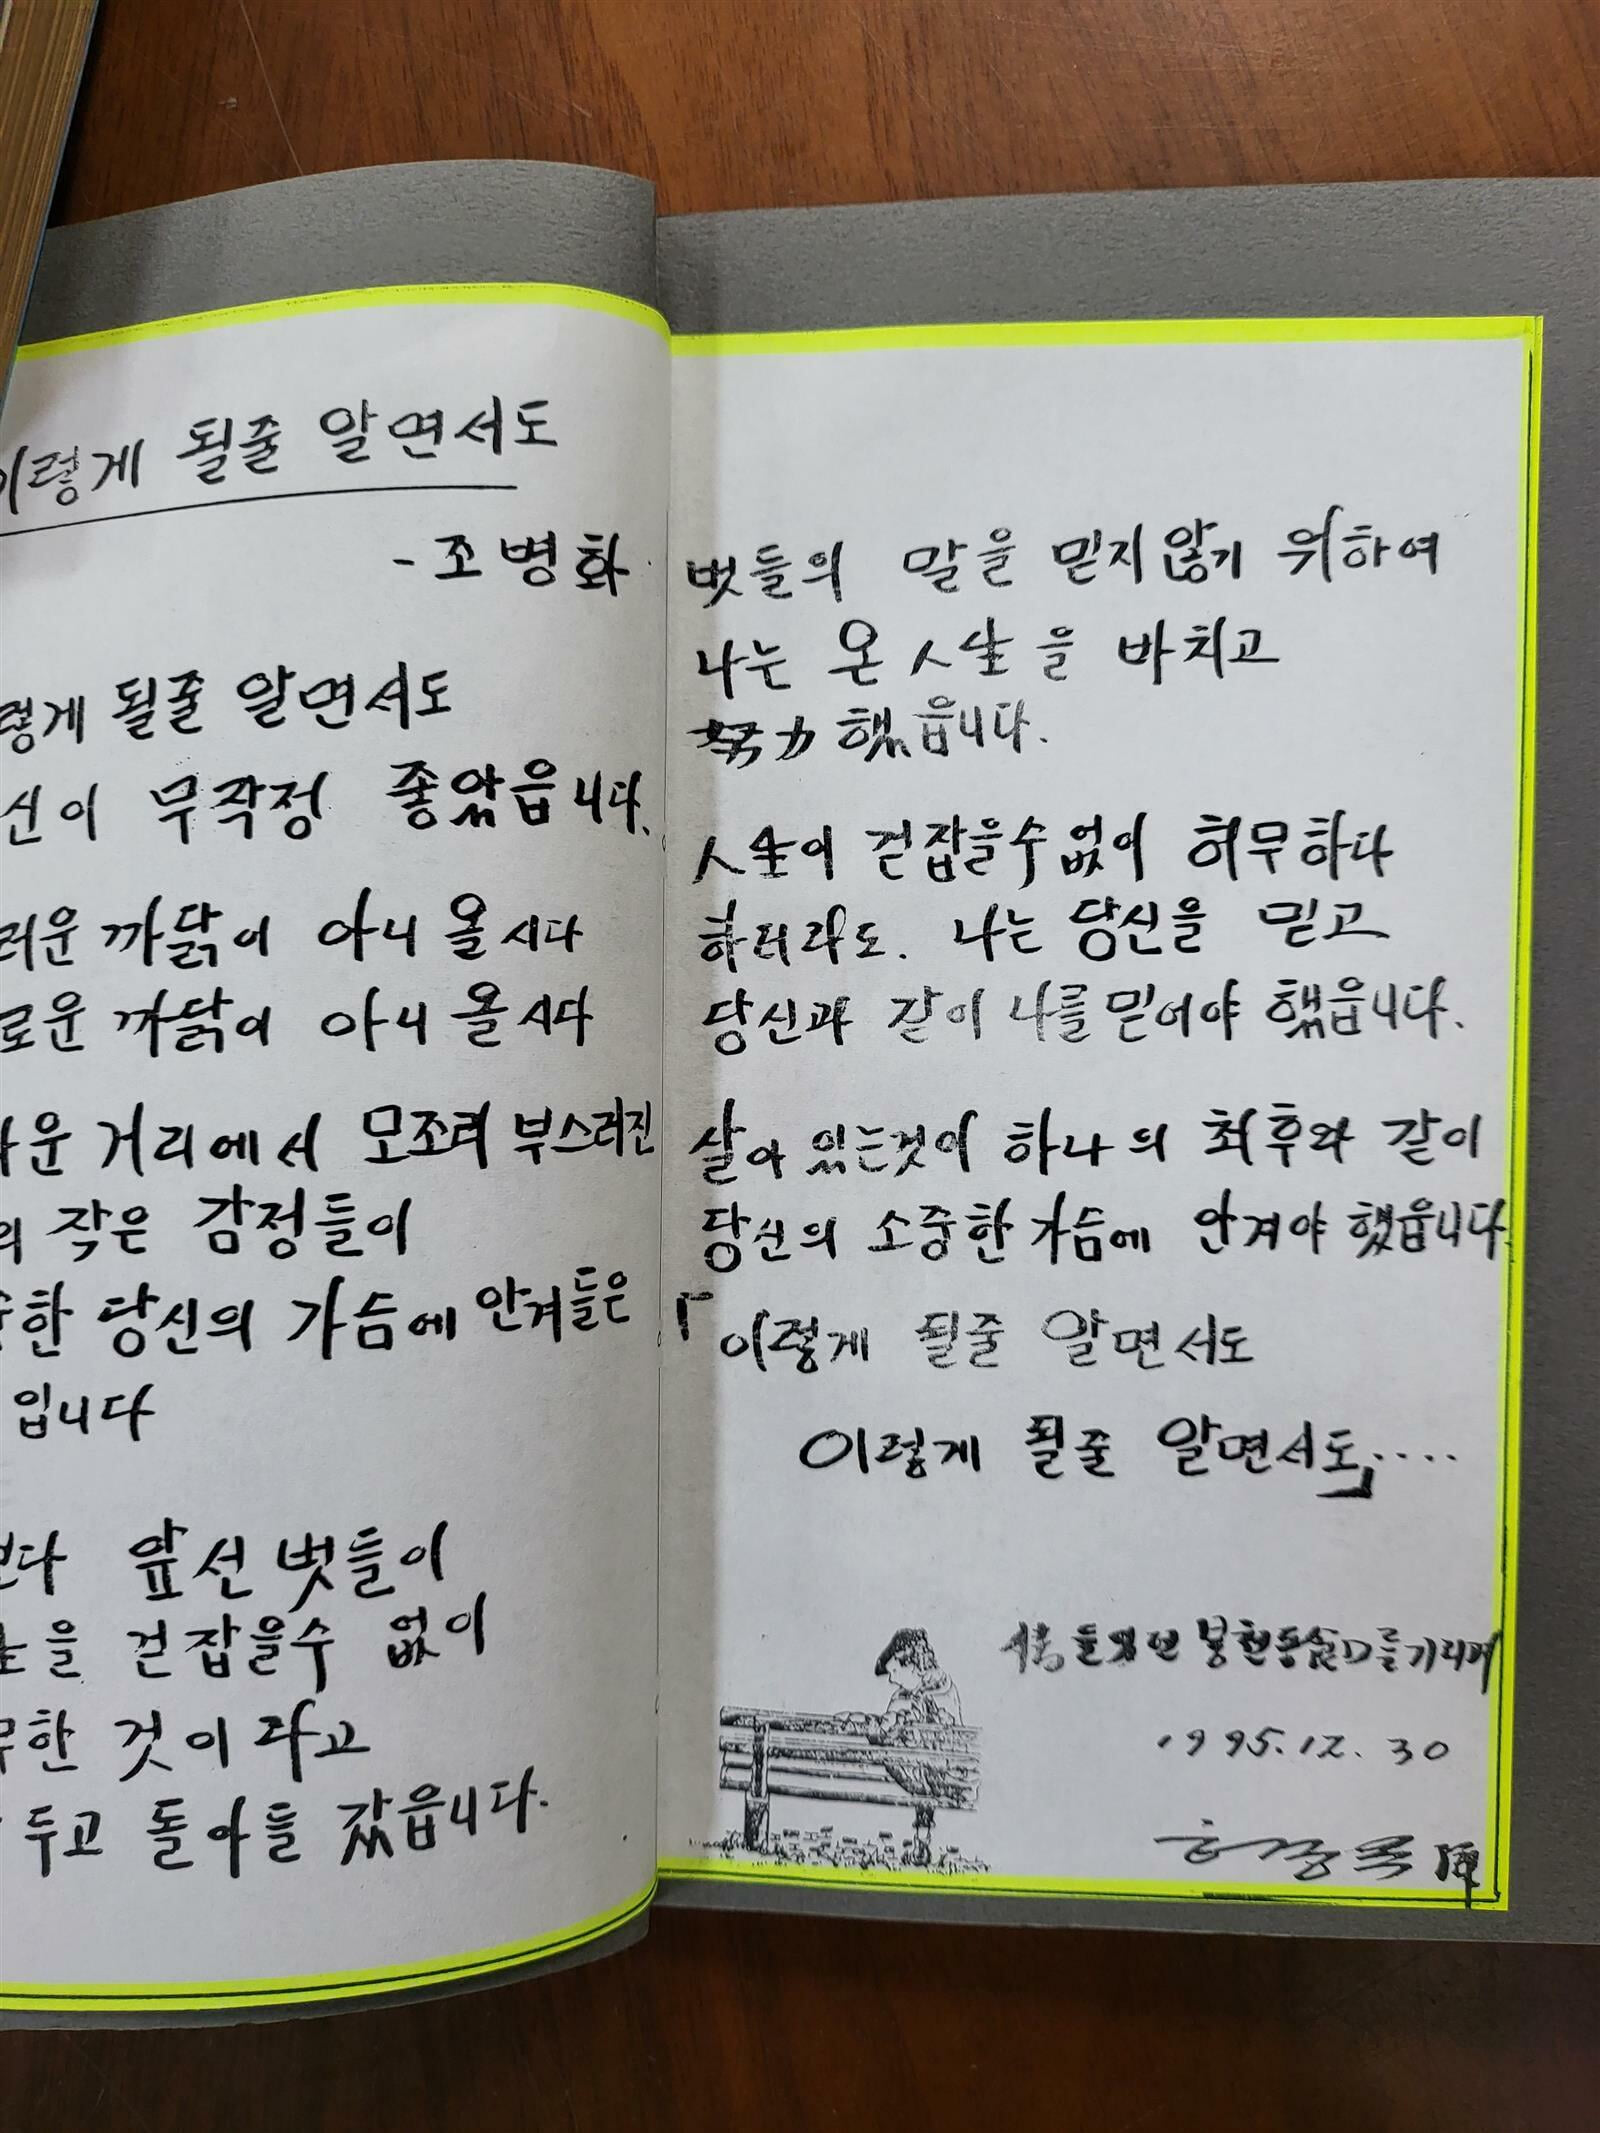 이렇게 될줄 알면서도
- 조병화
렇게 될줄 알면서도
신이 무작정 좋았읍니다.
러운 까닭이 아니올시다
로운 까닭이 아니올시다
운 거리에서 모조리 부스러진
의 작은 감정들이
한 당신의 가슴에 안겨들은
입니다
보다 앞선 벗들이
을 걷잡을수 없이
무한 것이라고
두고 돌아들 갔읍니다.
벗들의 말을 믿지않기 위하여
나는 온 人生을 바치고
努力했읍니다.
人生이 걷잡을수없이 허무하다
하더라도. 나는 당신을 믿고
당신과 같이 나를 믿어야 했읍니다.
살아 있는것이 하나의 최후와 같이
당신의 소중한 가슴에 안겨야 했읍니다.
「이렇게 될줄 알면서도
이렇게 될줄 알면서도」....
봉천동 를 기리며
1995.12.30